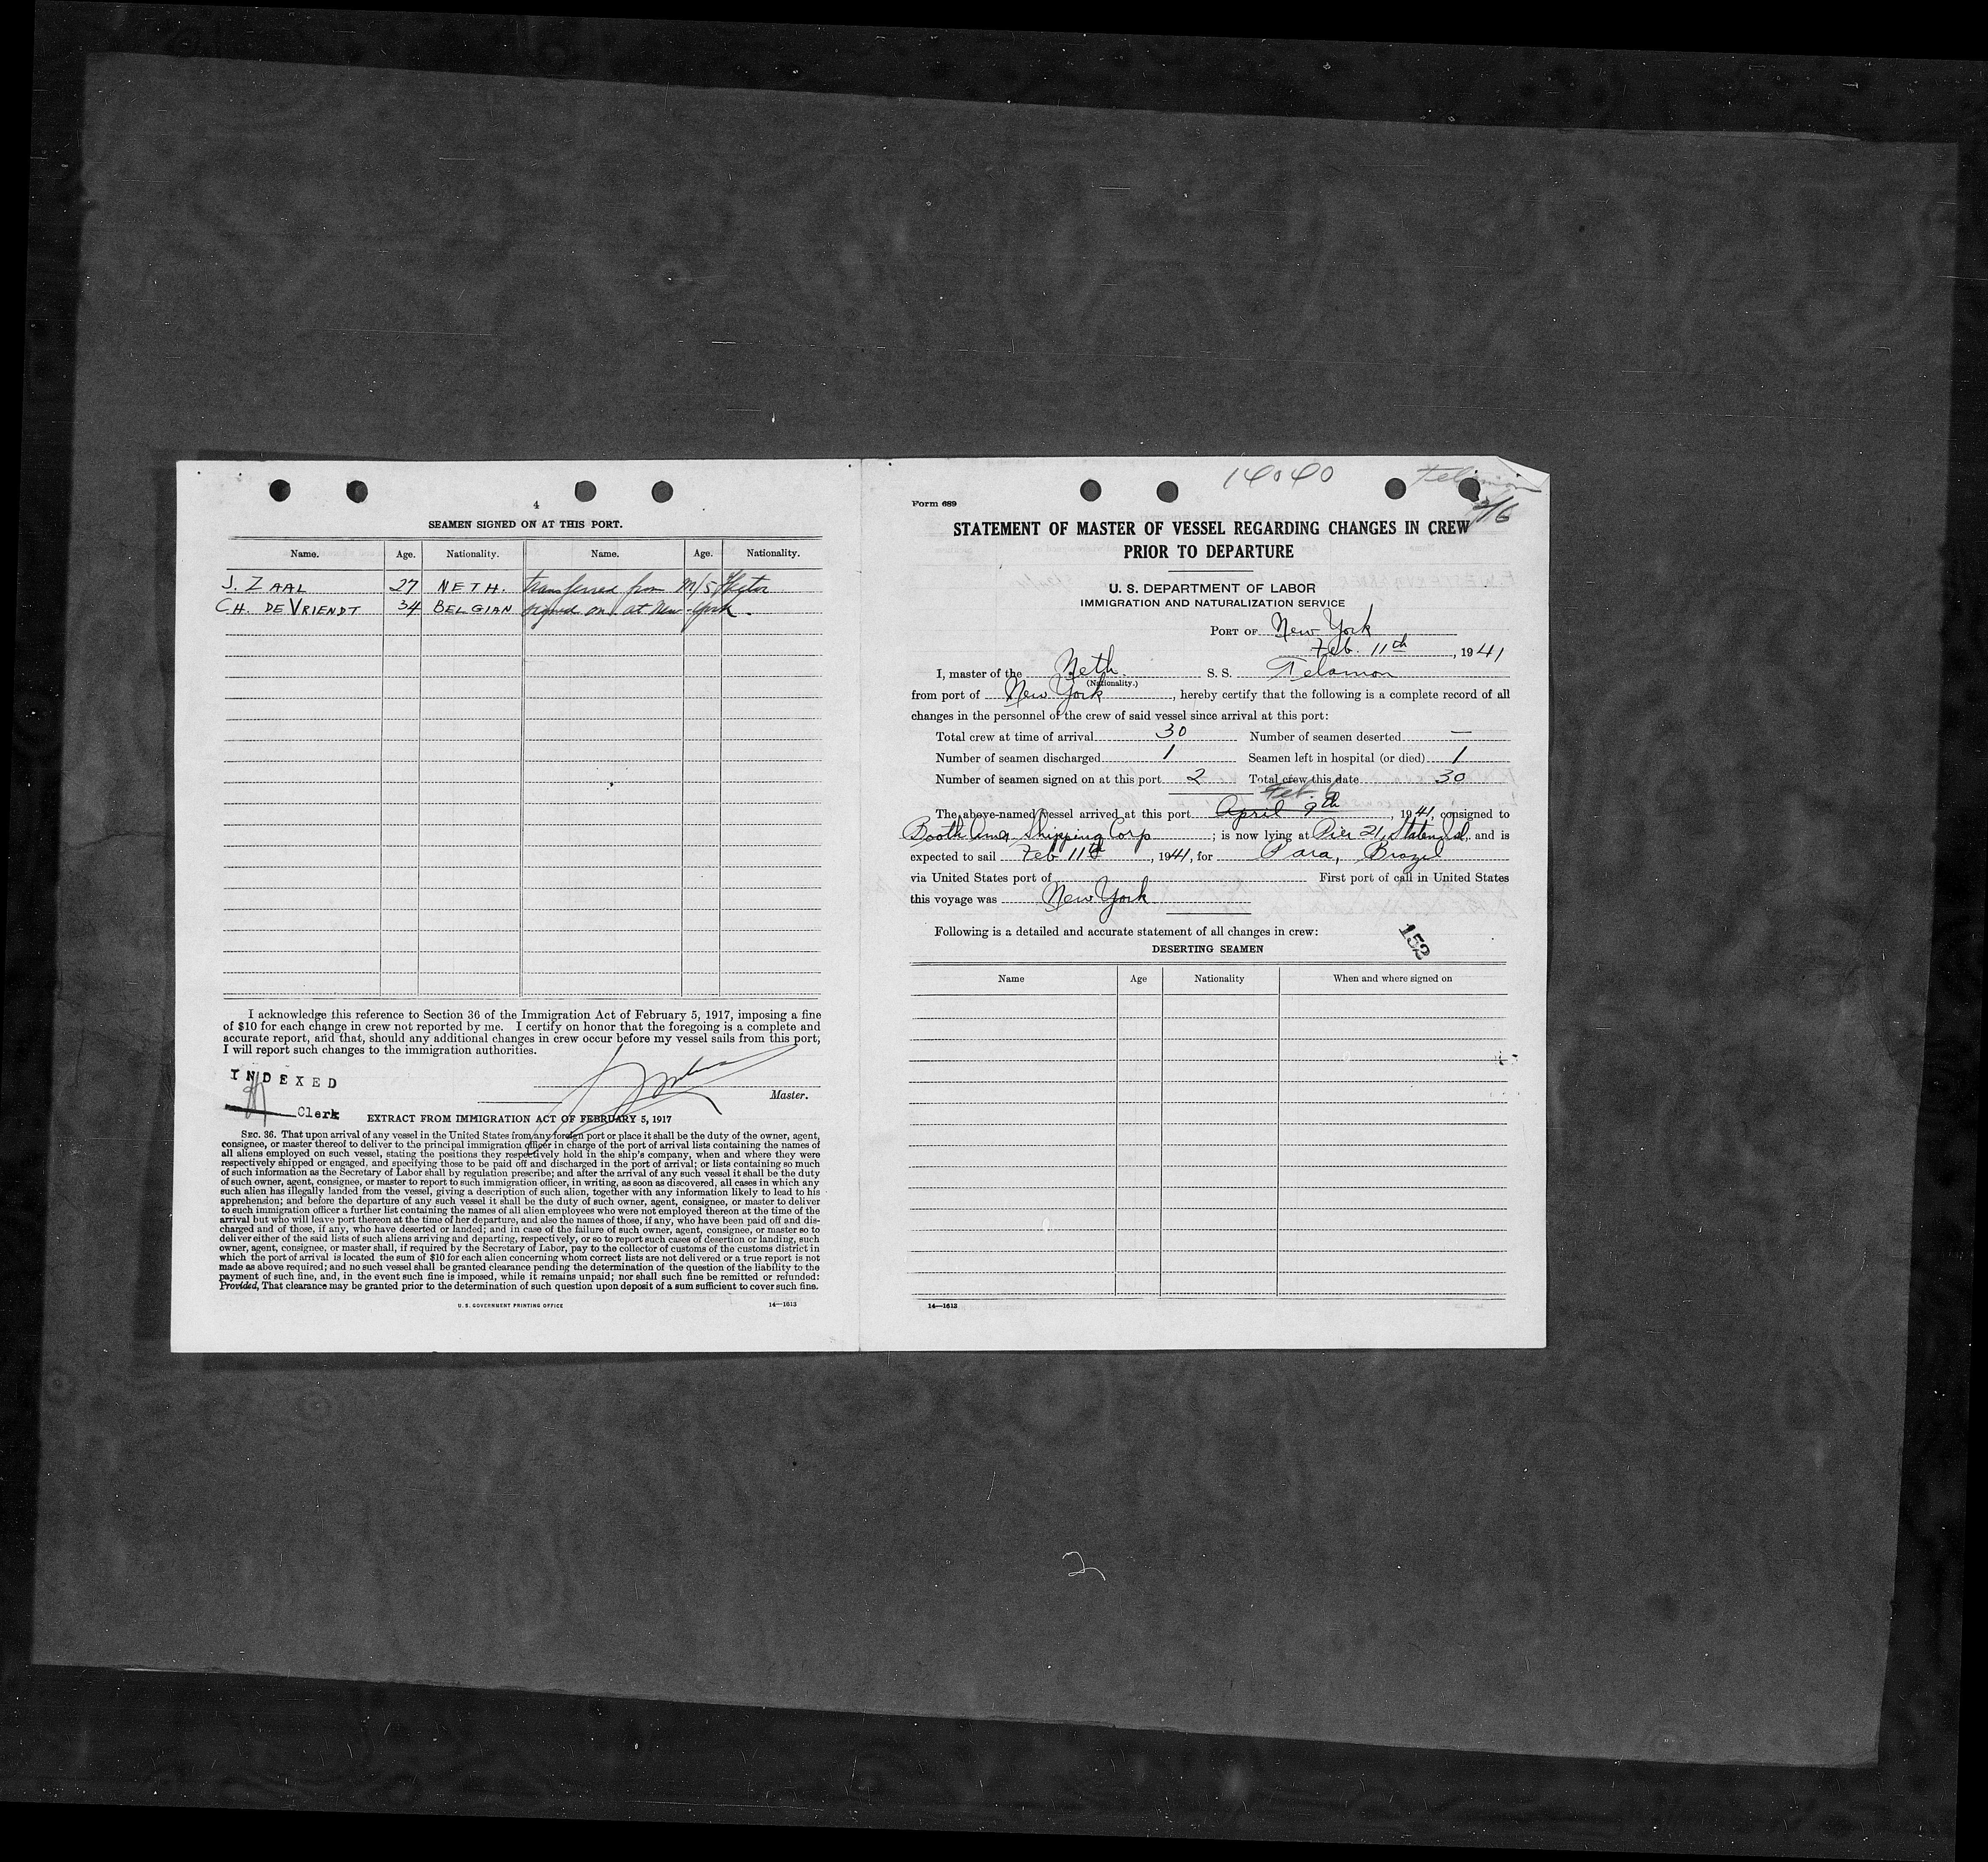 4
SEAMEN SIGNED ON AT THIS PORT.
Name. Age. Nationality. Name. Age. Nationality.
J. ZAAL 27 NETH. transferred from M/S Hector
CH. DE VRIENDT 34 BELGIAN signed on at New-York.
I acknowledge this reference to Section 36 of the Immigration Act of February 5, 1917, imposing a fine
of $10 for each change in crew not reported by me. I certify on honor that the foregoing is a complete and
accurate report, and that, should any additional changes in crew occur before my vessel sails from this port,
I will report such changes to the immigration authorities.
INDEXED
Master.
Clerk
EXTRACT FROM IMMIGRATION ACT OF FEBRUARY 5, 1917
SEC. 36. That upon arrival of any vessel in the United States from any foreign port or place it shall be the duty of the owner, agent,
consignee, or master thereof to deliver to the principal immigration officer in charge of the port of arrival lists containing the names of
all aliens employed on such vessel, stating the positions they respectively hold in the ship's company, when and where they were
respectively shipped or engaged, and specifying those to be paid off and discharged in the port of arrival; or lists containing so much
of such information as the Secretary of Labor shall by regulation prescribe; and after the arrival of any such vessel it shall be the duty
of such owner, agent, consignee, or master to report to such immigration officer, in writing, as soon as discovered, all cases in which any
such alien has illegally landed from the vessel, giving a description of such alien, together with any information likely to lead to his
apprehension; and before the departure of any such vessel it shall be the duty of such owner, agent, consignee, or master to deliver
to such immigration officer a further list containing the names of all alien employees who were not employed thereon at the time of the
arrival but who will leave port thereon at the time of her departure, and also the names of those, if any, who have been paid off and dis-
charged and of those, if any, who have deserted or landed; and in case of the failure of such owner, agent, consignee, or master so to
deliver either of the said lists of such aliens arriving and departing, respectively, or so to report such cases of desertion or landing, such
owner, agent, consignee, or master shall, if required by the Secretary of Labor, pay to the collector of customs of the customs district in
which the port of arrival is located the sum of $10 for each alien concerning whom correct lists are not delivered or a true report is not
made as above required; and no such vessel shall be granted clearance pending the determination of the question of the liability to the
payment of such fine, and, in the event such fine is imposed, while it remains unpaid; nor shall such fine be remitted or refunded:
Provided, That clearance may be granted prior to the determination of such question upon deposit of a sum sufficient to cover such fine.
U. S. GOVERNMENT PRINTING OFFICE 14—1613
14040 Telamon
2/6
Form 689
STATEMENT OF MASTER OF VESSEL REGARDING CHANGES IN CREW
PRIOR TO DEPARTURE
U. S. DEPARTMENT OF LABOR
IMMIGRATION AND NATURALIZATION SERVICE
PORT OF New York
Feb. 11th, 1941
I, master of the Neth. S. S. Telamon
(Nationality.)
from port of New York, hereby certify that the following is a complete record of all
changes in the personnel of the crew of said vessel since arrival at this port:
Total crew at time of arrival 30 Number of seamen deserted —
Number of seamen discharged 1 Seamen left in hospital (or died) 1
Number of seamen signed on at this port 2 Total crew this date 30
Feb. 6
The above-named vessel arrived at this port April 9th, 1941, consigned to
Booth Amer Shipping Corp; is now lying at Pier 21, Staten Isl, and is
expected to sail Feb 11th, 1941, for Para, Brazil
via United States port of First port of call in United States
this voyage was New York
Following is a detailed and accurate statement of all changes in crew:
153
DESERTING SEAMEN
Name Age Nationality When and where signed on
14—1613
2